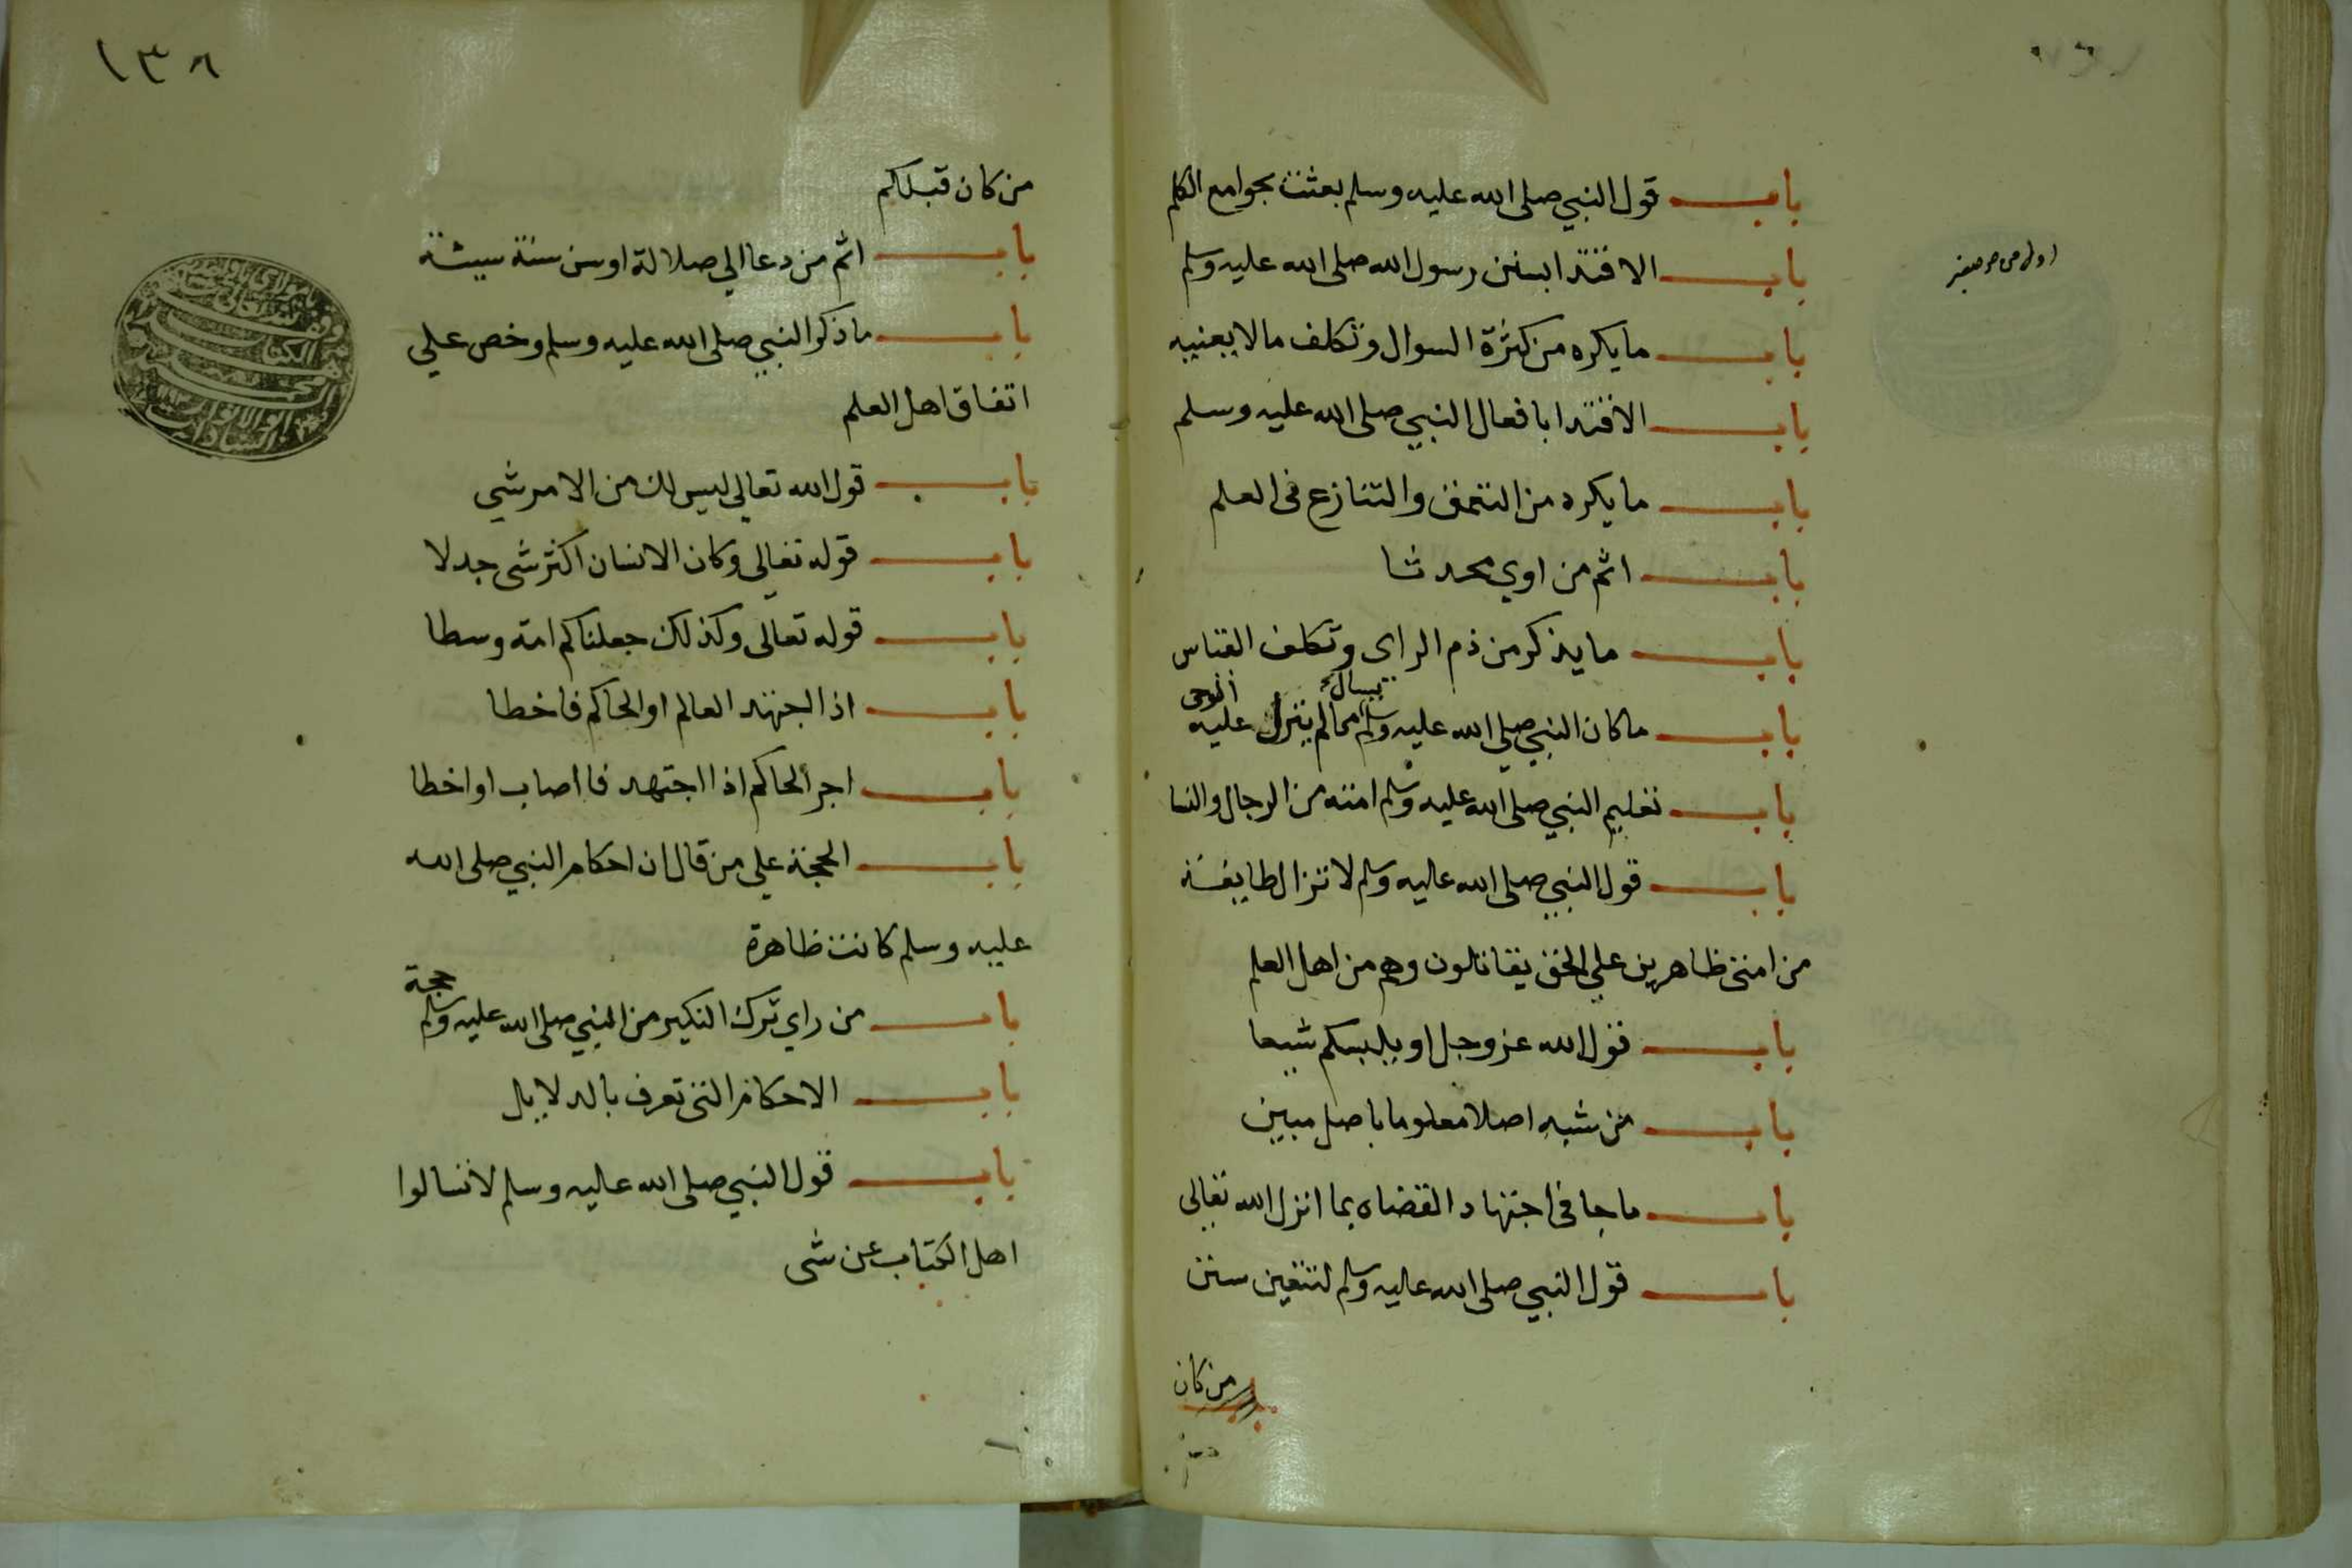 باب قول النبي صلى الله عليه وسلم بعثت بجوامع الكلم
باب الاقتدا بسنن رسول الله صلى الله عليه وسلم
باب ما يكره من كثرة السوال وتكلف مالا يعنيه
باب الاقتدا بافعال النبي صلى الله عليه وسلم
باب ما يكره من التعمق والتنازع فى العلم
باب اثم من اوي محدثا
باب ما يذكر من ذم الراى وتكلف القياس
باب ماكان النبي صلي الله عليه وسلم يسال مما لم ينزل عليه الوحى
باب تعليم النبي صلى الله عليه وسلم امته من الرجال والنسا
باب قول النبي صلى الله عليه وسلم لا تزال طايفة
من امتى ظاهرين علي الحق يقاتلون وهم من اهل العلم
باب قول الله عز وجل او يلبسكم شيعا
باب من شبه اصلا معلوما باصل مبين
باب ما جا فى اجتهاد القضاه بما انزل الله تعالى
باب قول النبي صلى الله عليه وسلم لتتبعن سنن
من كان
١٣٨
من كان قبلكم
باب اثم من دعا الي ضلالة او سن سنة سيئة
باب ما ذكر النبي صلى الله عليه وسلم وخص علي
اتفاق اهل العلم
باب قول الله تعالي ليس لك من الامر شي
باب قوله تعالى وكان الانسان اكثر شى جدلا
باب قوله تعالى وكذلك جعلناكم امة وسطا
باب اذا اجتهد العالم او الحاكم فاخطا
باب اجر الحاكم اذا اجتهد فااصاب او اخطا
باب الحجة علي من قال ان احكام النبي صلى الله
عليه وسلم كانت ظاهرة
باب من راي ترك النكير من النبي صلى الله عليه وسلم حجة
باب الاحكام التى تعرف بالدلايل
باب قول النبي صلى الله عليه وسلم لا تسالوا
اهل الكتاب عن شى